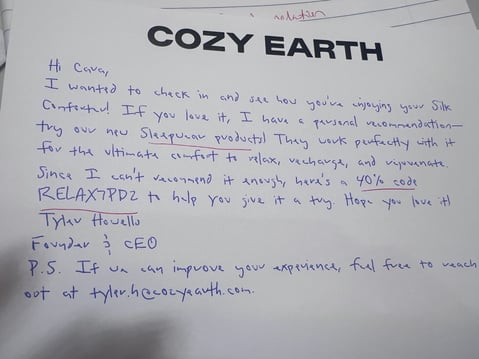 COZY EARTH
Hi Cara,
I wanted to check in and see how you've enjoying your Silk
Comforter! If you love it, I have a personal recommendation—
try our new Sleepwear products! They work perfectly with it
for the ultimate comfort to relax, recharge, and rejuvenate.
Since I can't recommend it enough, here's a 40% code
RELAX7PD2 to help you give it a try. Hope you love it!
Tyler Howells
Founder & CEO
P.S. If we can improve your experience, feel free to reach
out at tyler.h@cozyearth.com.